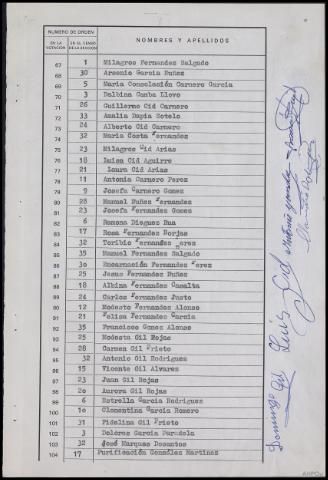 NUMERO DE ORDEN
NOMBRES Y APELLIDOS
EN LA VOTACION
EN EL CENSO DE LA SECCION
67 1 Milagros Fernandez Salgado
68 30 Arsenio Garcia Nuñez
69 5 Maria Consolación Carnero Garcia
70 3 Balbina Camba Llovo
71 26 Guillermo Cid Carnero
72 33 Amalia Dapia Sotelo
73 24 Alberto Cid Carnero
74 32 Maria Costa Fernandez
75 23 Milagros Cid Arias
76 18 Luisa Cid Aguirre
77 21 Laura Cid Arias
78 11 Antonia Carnero Perez
79 9 Josefa Carnero Gomez
80 28 Manuel Nuñez Fernandez
81 23 Josefa Fernandez Gomez
82 6 Ramona Dieguez Rua
83 17 Rosa Fernandez Borjas
84 32 Toribio Fernandez Perez
85 35 Manuel Fernandez Salgado
86 30 Encarnación Fernandez Perez
87 25 Jesus Fernandez Nuñez
88 18 Albina Fernandez Casalta
89 24 Carlos Fernandez Justo
90 12 Modesto Fernandez Alonso
91 21 Felisa Fernandez Garcia
92 35 Francisco Gomez Alonso
93 25 Modesta Gil Rojas
94 28 Carmen Gil Prieto
95 32 Antonio Gil Rodriguez
96 15 Vicente Gil Alvarez
97 23 Juan Gil Rojas
98 20 Aurora Gil Rojas
99 6 Estrella Garcia Rodriguez
100 10 Clementina Garcia Romero
101 31 Fidelina Gil Prieto
102 3 Dolores Garcia Paradela
103 32 José Marquez Docantos
104 17 Purificación González Martinez
Domingo Gil Luis Cid
AHPOu